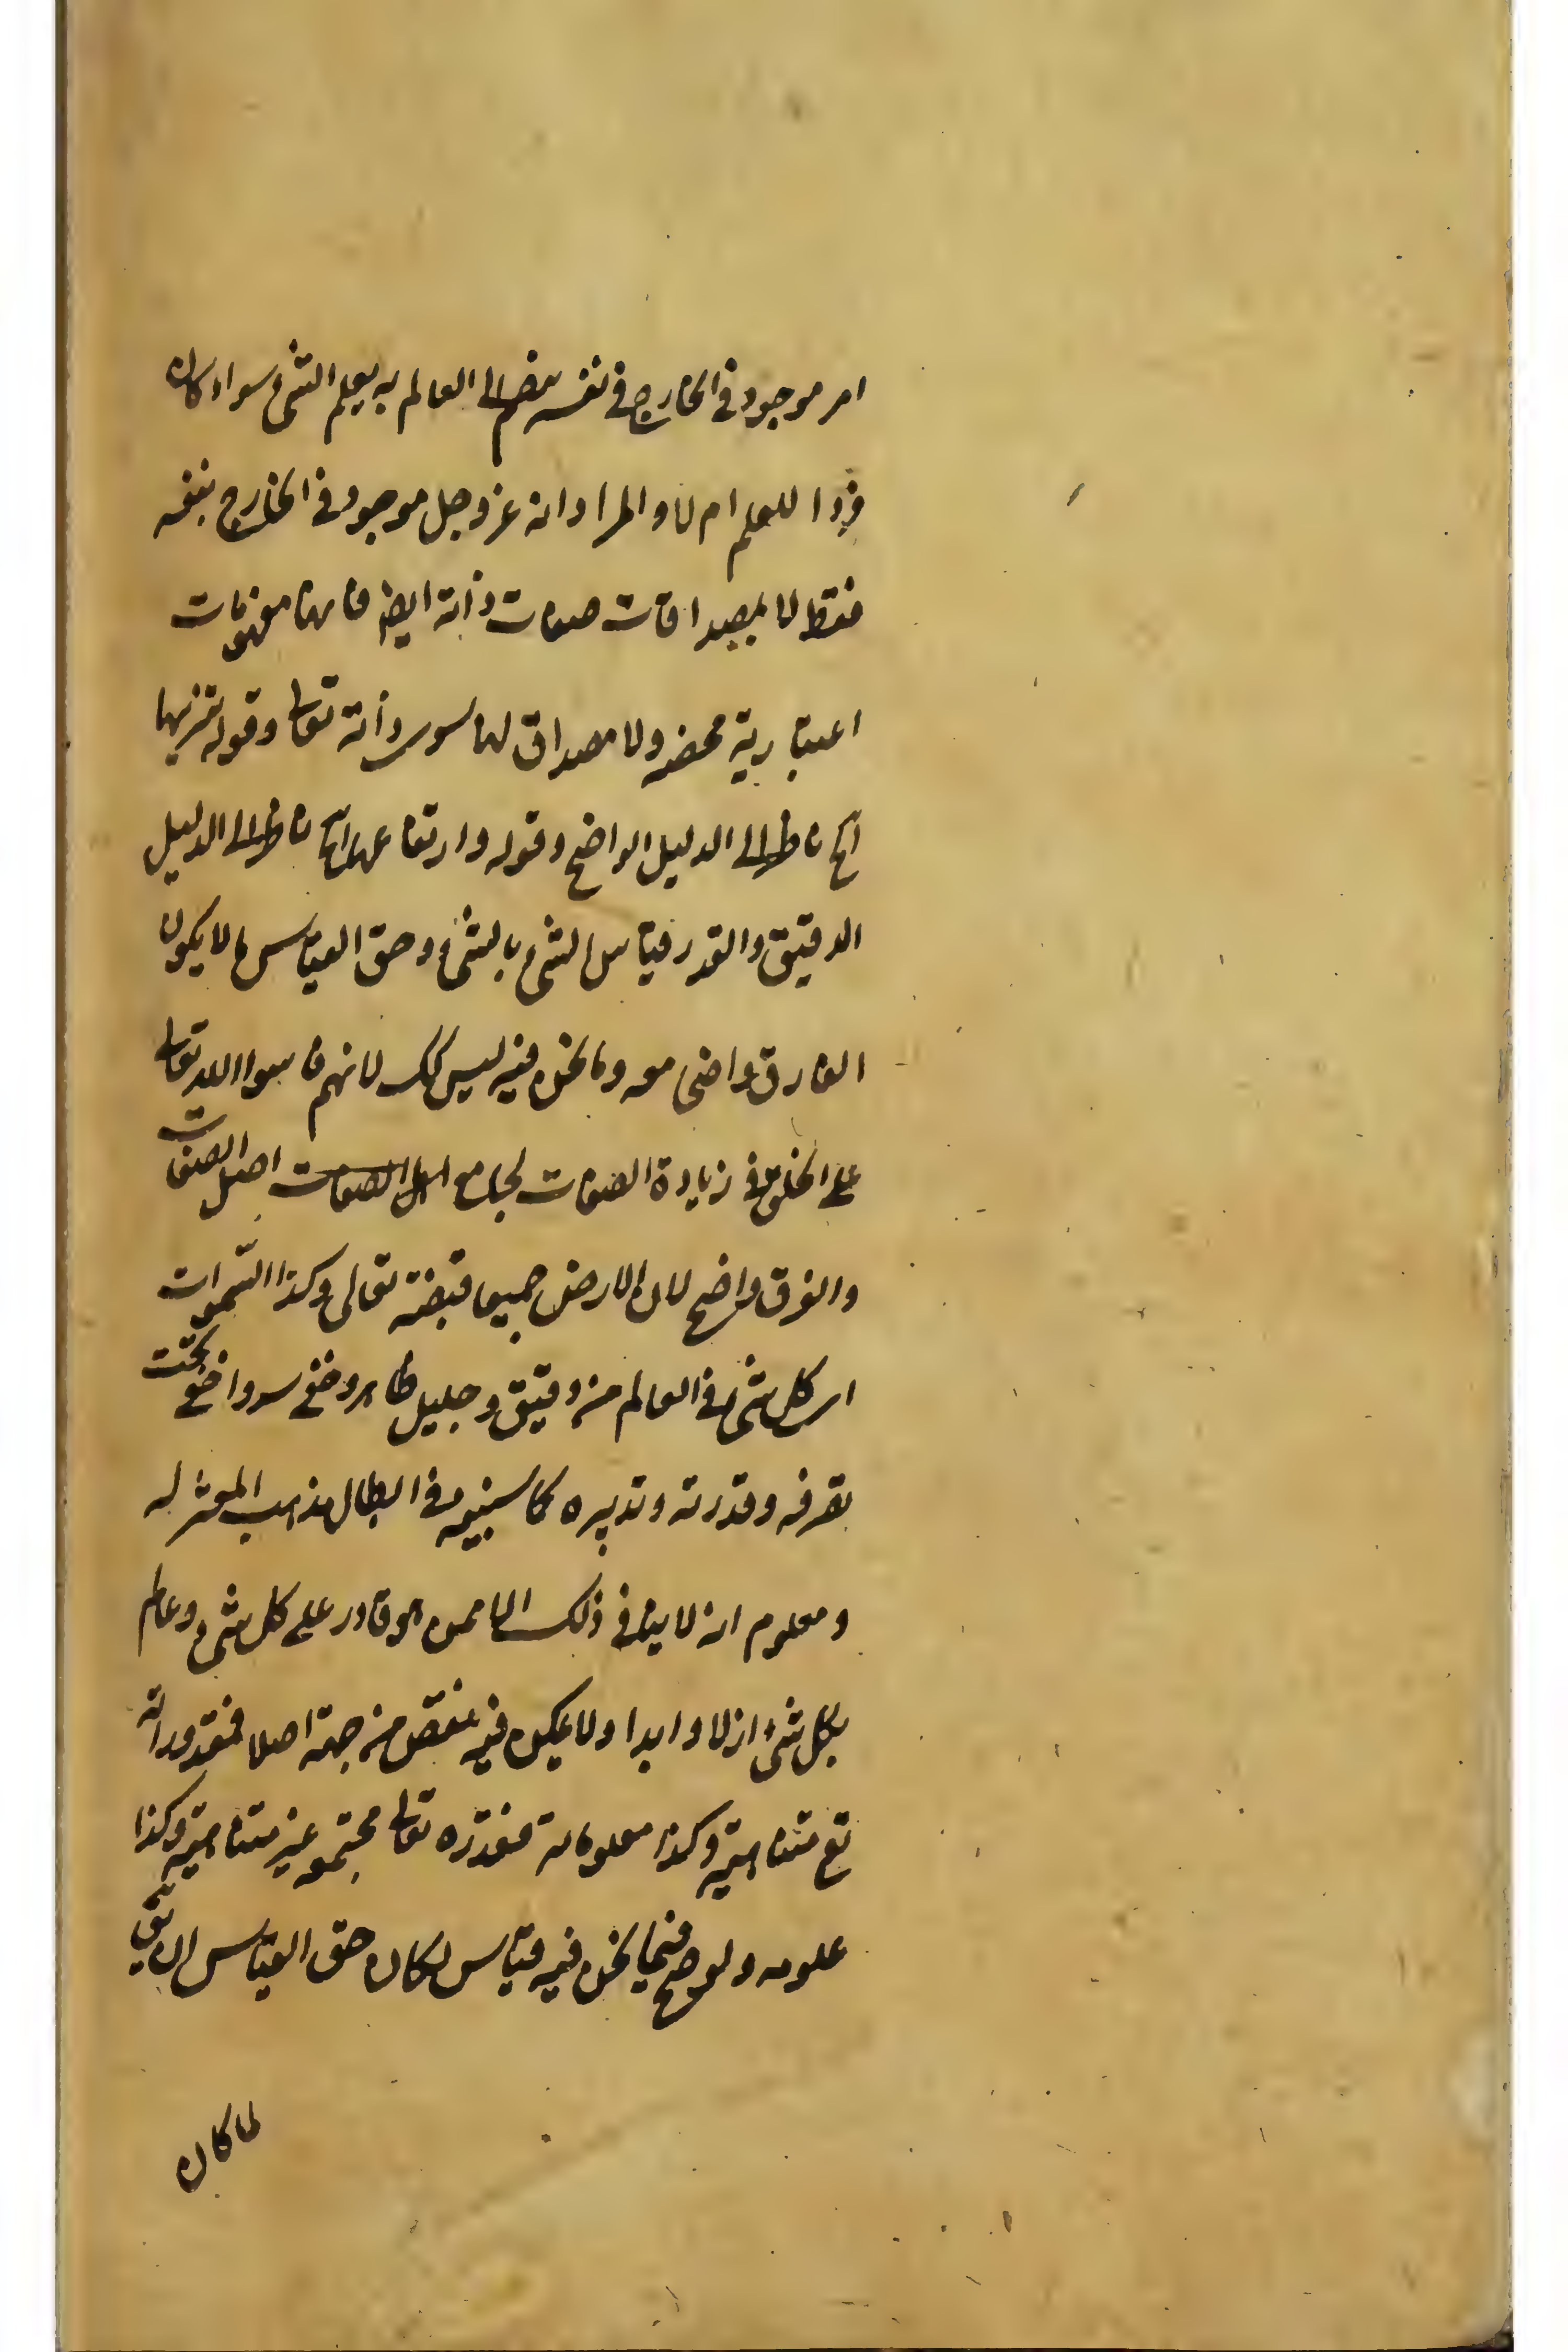 امر موجود فى الخارج فى نفسه منضم الى العالم به يعلم الشئ سواء كان
فردا للعلم ام لا و المراد انه عز وجل موجود فى الخارج بنفسه
فقط لا بمصداقات صفات ذاته ايض فانها مفهومات
اعتبارية محضه ولا مصداق لها سوى ذاته تعا وقوله تنزيها
آلخ ناظر الى الدليل الواضح وقوله وارتفاعها آلخ ناظر الى الدليل
الدقيق والقدر قياس الشئ بالشئ وحق القياس ما لا يكون
الفارق واضحا معه وما نحن فيه ليس كك لانهم قاسوا الله تعا
على الخلق فى زيادة الصفات لجامع اصل الصفات اصل الصفات
والفرق واضح لان الارض جميعا قبضته تعالى وكذا السموات
اى كل شئ فى العالم من دقيق وجليل ظاهر وخفى سر واخفى تحت
تصرفه وقدرته وتدبيره كما سنبينه فى ابطال مذاهب المعتزله
ومعلوم انه لا يتأتى ذلك الا ممن هو قادر على كل شئ وعالم
بكل شئ ازلا وابدا ولا يمكن فيه نقص من جهة اصلا فمقدوراته
تع متناهية وكذا معلوماته فقدرته تعا مجتمعه غير متناهية وكذا
علومه ولو صح فيما نحن فيه قياس لكان حق القياس ان يق
لما كان